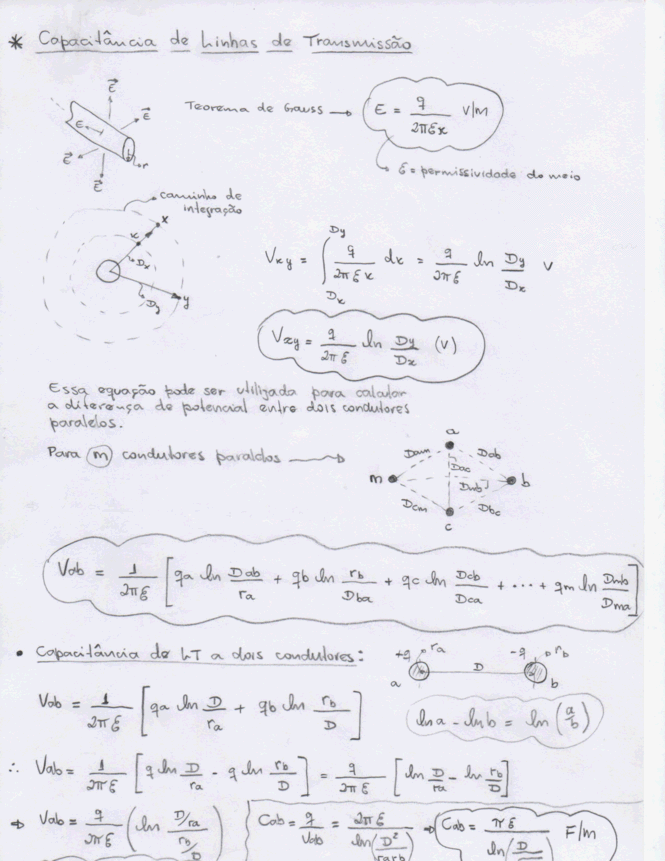 * Capacitância de Linhas de Transmissão
Teorema de Gauss → E = q / 2πεx V/m
ε = permissividade do meio
E⃗ E⃗ E⃗ E⃗ r
caminho de
integração
x
Dx
Dy
y
Vxy = ∫ Dx Dy q / 2πεx dx = q / 2πε ln Dy / Dx V
Vxy = q / 2πε ln Dy / Dx (V)
Essa equação pode ser utilizada para calcular
a diferença de potencial entre dois condutores
paralelos.
Para (m) condutores paralelos →
a
Dam Dac Dab
m Dmb b
Dcm Dbc
c
Vab = 1 / 2πε [ qa ln Dab / ra + qb ln rb / Dba + qc ln Dcb / Dca + ... + qm ln Dmb / Dma ]
• Capacitância de LT a dois condutores:
+q ra -q rb
a D b
Vab = 1 / 2πε [ qa ln D / ra + qb ln rb / D ]
ln a - ln b = ln (a/b)
∴ Vab = 1 / 2πε [ q ln D / ra - q ln rb / D ] = q / 2πε [ ln D / ra - ln rb / D ]
⇒ Vab = q / 2πε ( ln D/ra / rb/D )
Cab = q / Vab = 2πε / ln(D² / rarb) ⇒ Cab = πε / ln(D F/m